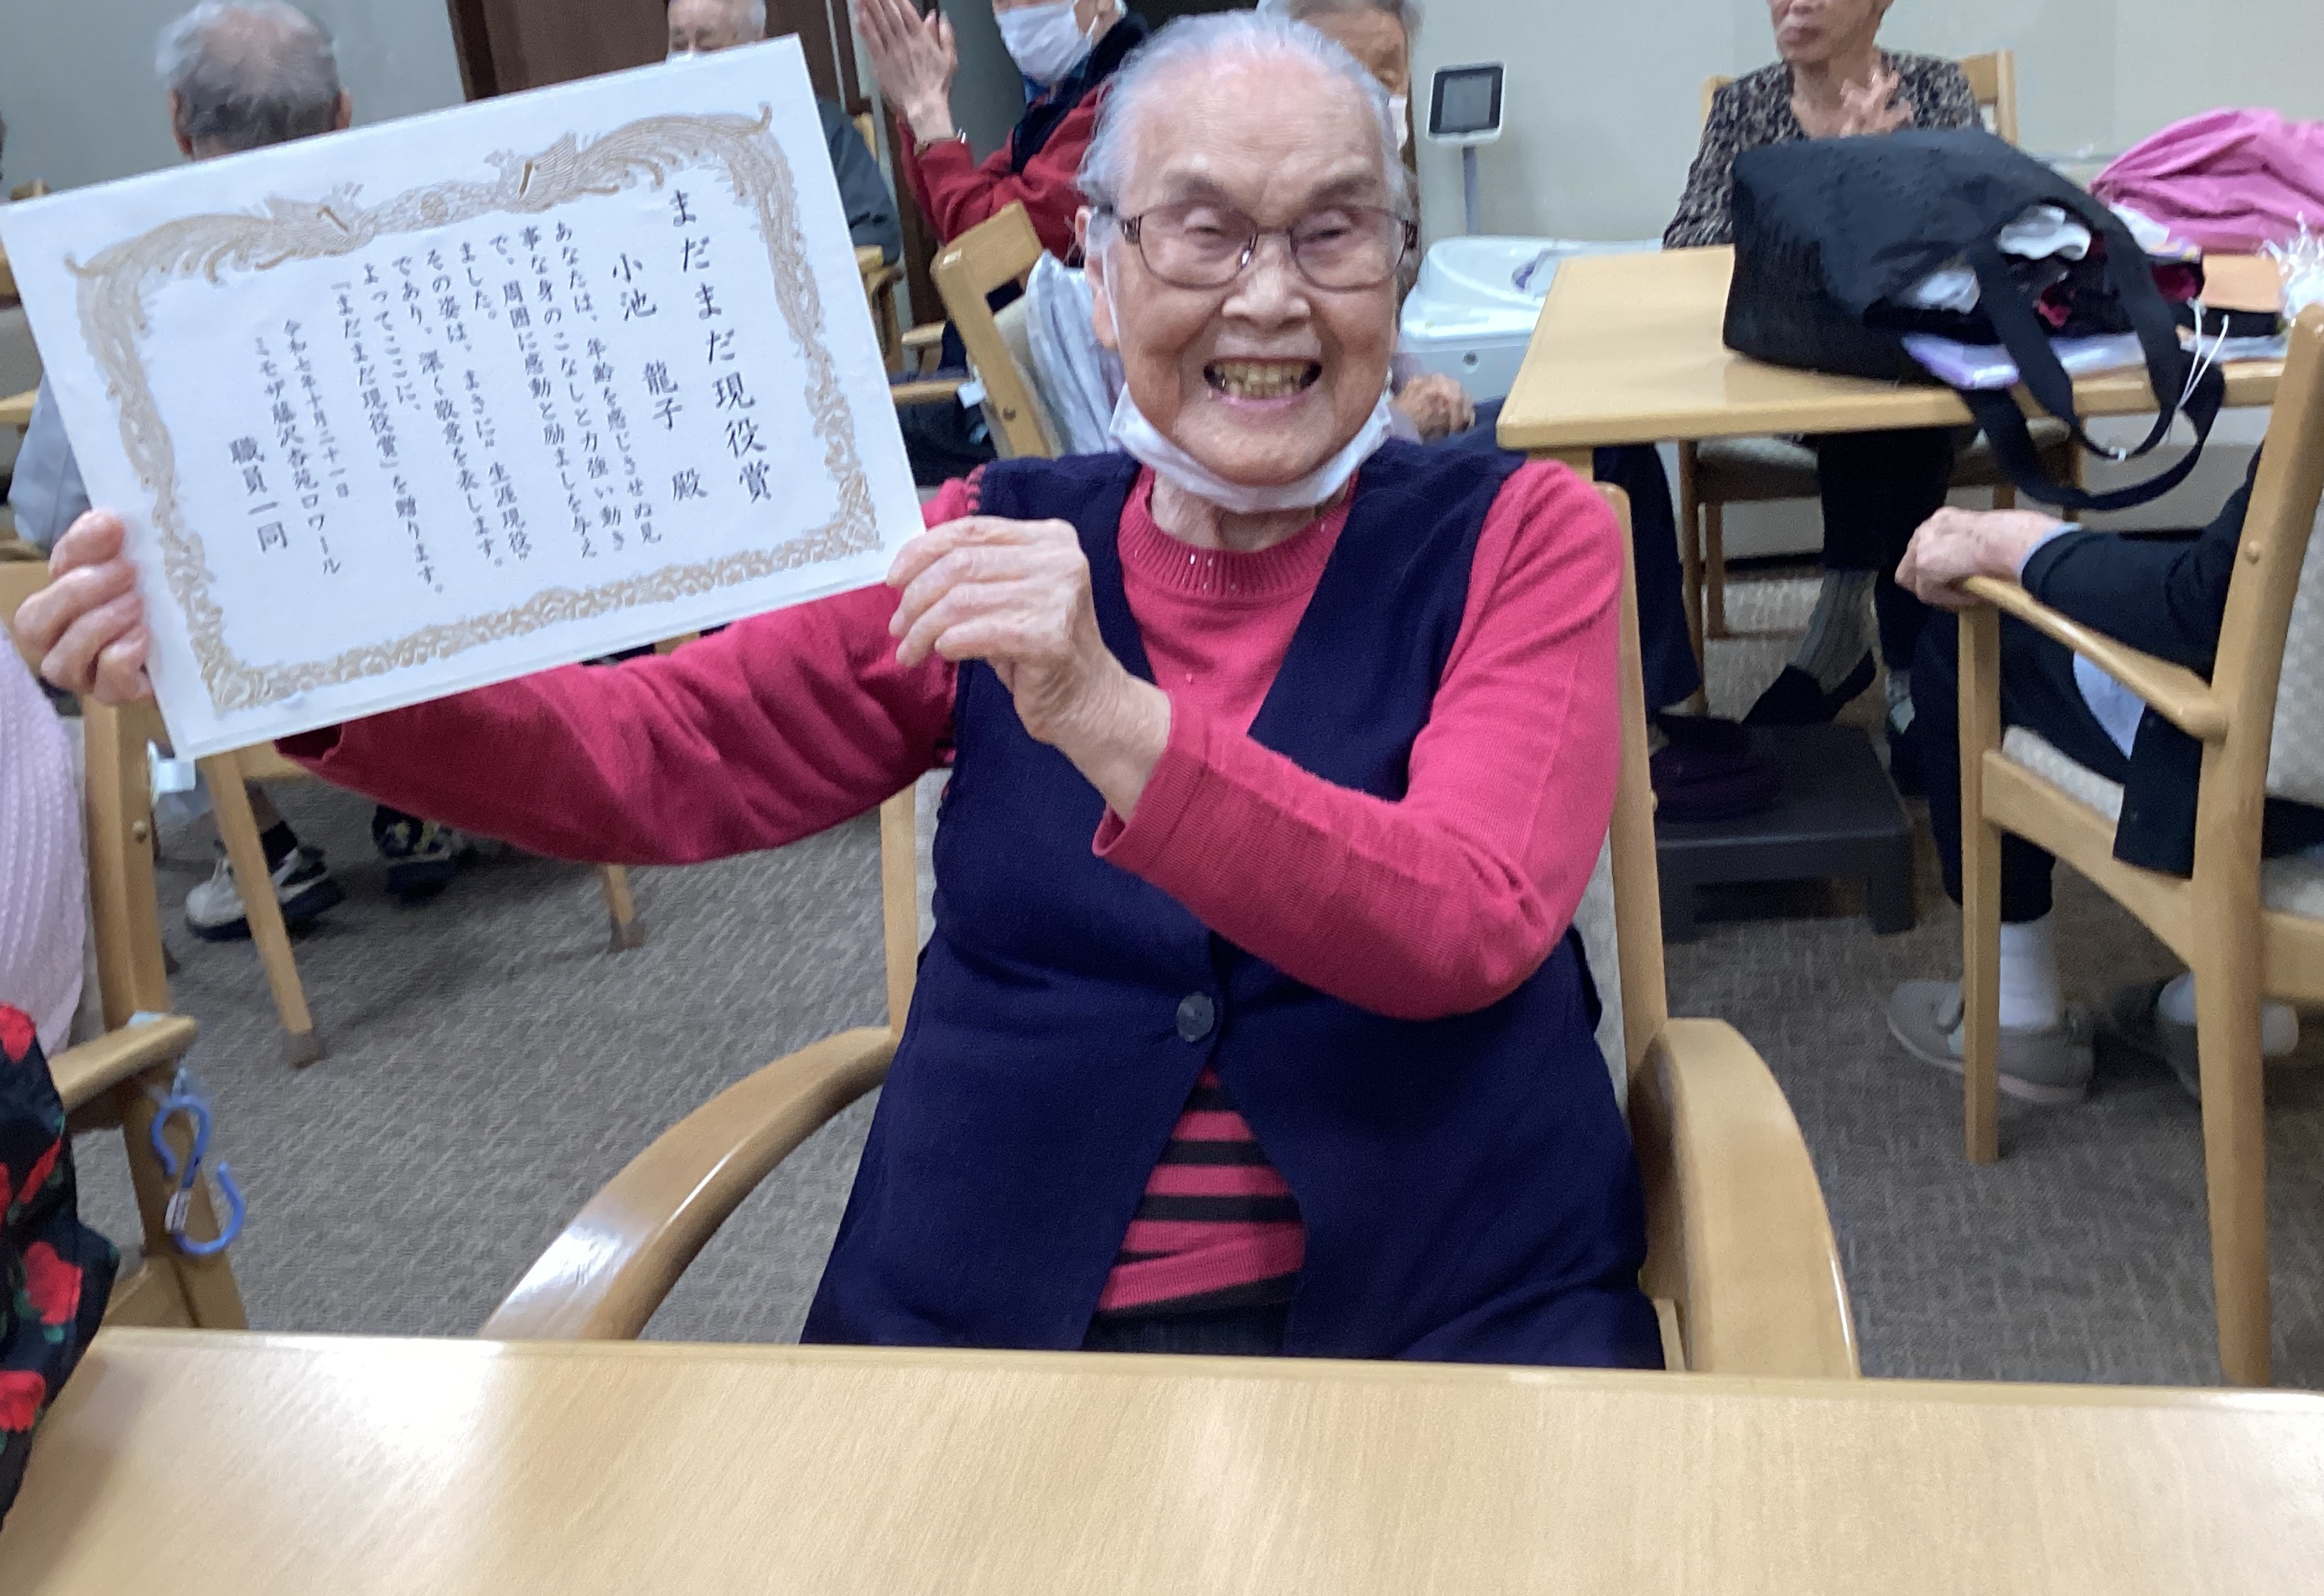 まだまだ現役賞
小池 龍子 殿
あなたは、年齢を感じさせぬ見
事な身のこなしと力強い動き
で、周囲に感動と励ましを与え
ました。
その姿は、まさに〝生涯現役〟
であり、深く敬意を表します。
よってここに、
「まだまだ現役賞」を贈ります。
令和七年十月二十一日
ミモザ藤沢杏苑ロワール
職員一同